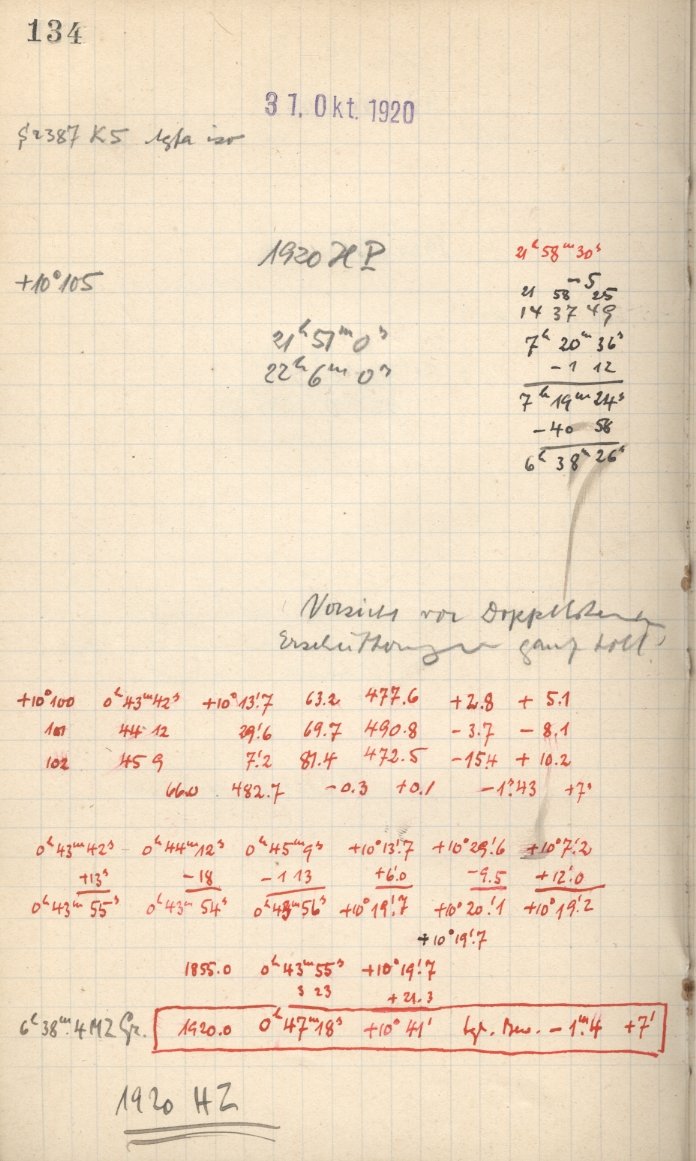 134
31. Okt. 1920
§ 2387 K5
1920 HP
+10°105
21ʰ 51ᵐ 0ˢ
22ʰ 6ᵐ 0ˢ
21ʰ 58ᵐ 30ˢ
-5
21 58 25
14 37 49
7ʰ 20ᵐ 36ˢ
-1 12
7ʰ 19ᵐ 24ˢ
-40 58
6ʰ 38ᵐ 26ˢ
Vorsicht vor
Erschütterungen ganz toll!
+10°100 0ʰ 43ᵐ 42ˢ +10°13!7 63.2 477.6 +2.8 + 5.1
101 44 12 29!6 69.7 490.8 -3.7 - 8.1
102 45 9 7!2 81.4 472.5 -15.4 + 10.2
66.0 482.7 -0.3 +0.1 -1ᵐ43 +7'
0ʰ 43ᵐ 42ˢ 0ʰ 44ᵐ 12ˢ 0ʰ 45ᵐ 9ˢ +10°13!7 +10°29!6 +10°7!2
+13ˢ -18 -1 13 +6!0 -9.5 +12!0
0ʰ 43ᵐ 55ˢ 0ʰ 43ᵐ 54ˢ 0ʰ 43ᵐ 56ˢ +10°19!7 +10°20!1 +10°19!2
+10°19!7
1855.0 0ʰ 43ᵐ 55ˢ +10°19!7
3 23 +21.3
6ʰ 38ᵐ.4 MZ Gr. 1920.0 0ʰ 47ᵐ 18ˢ +10°41' tgl. Bew. -1ᵐ4 +7'
1920 HZ